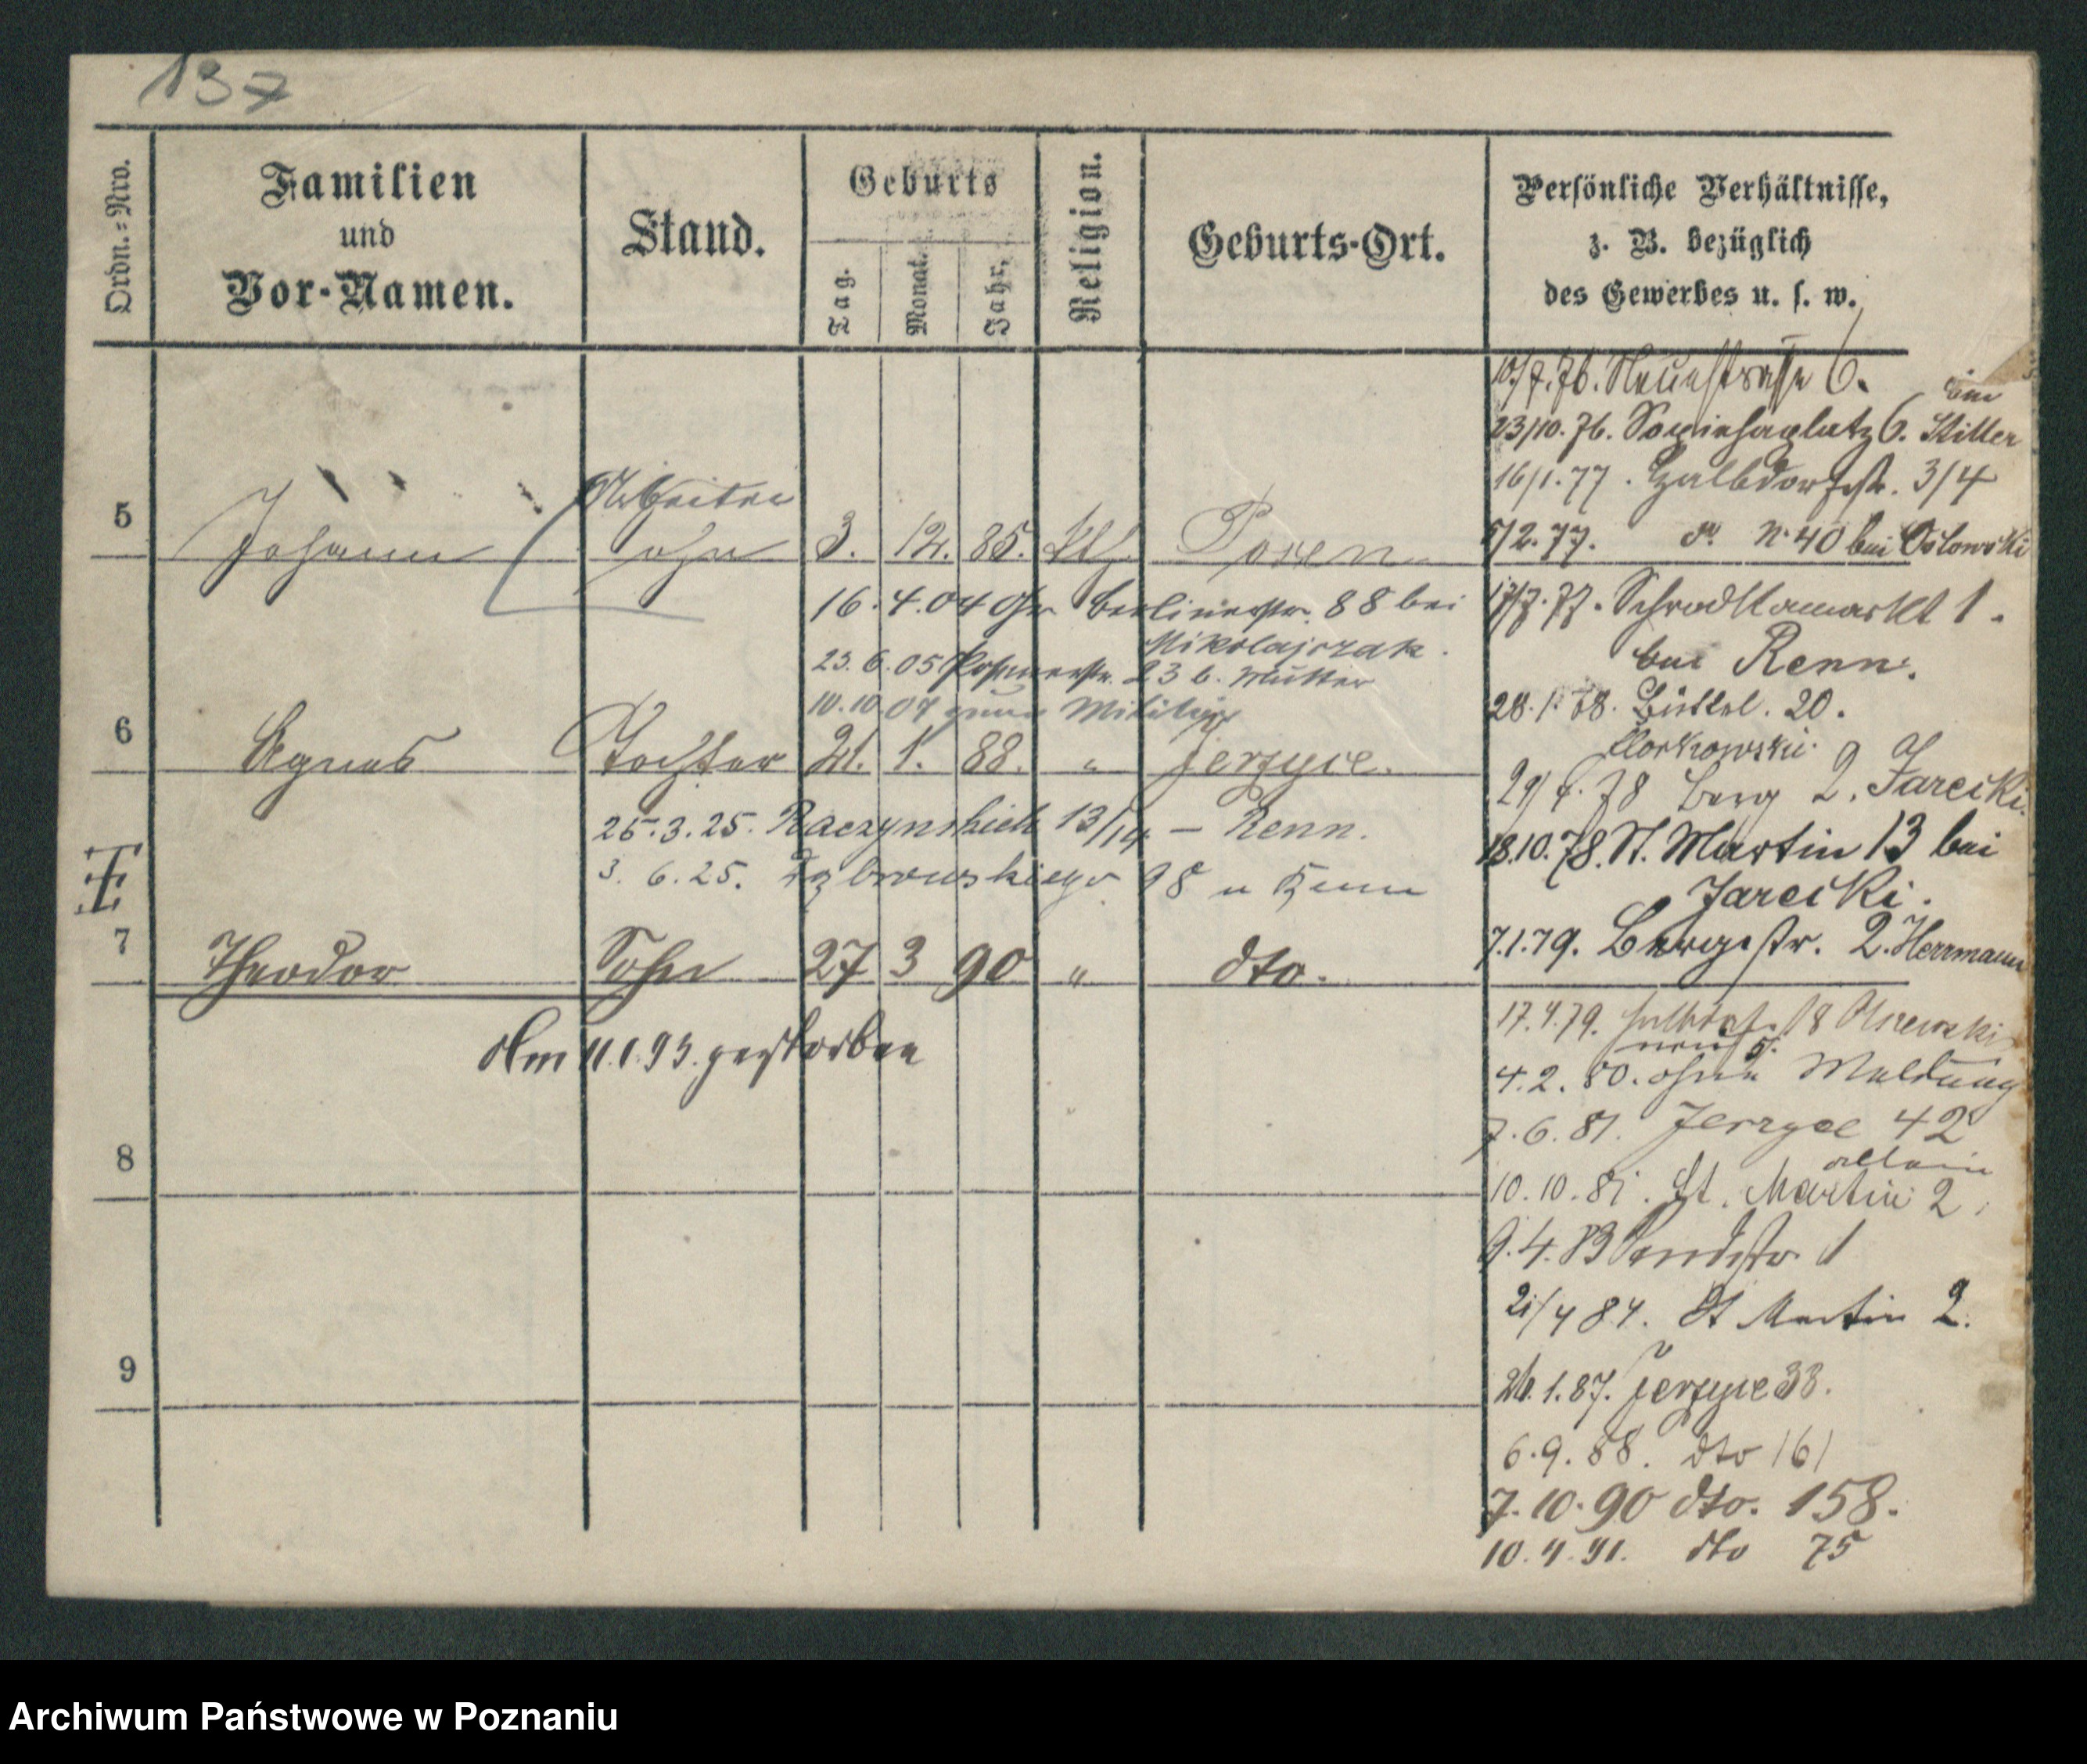 137
Ordn.=Nro.
Familien
und
Vor-Namen.
Stand.
Geburts
Tag.
Monat.
Jahr.
Religion.
Geburts-Ort.
Persönliche Verhältnisse,
z. B. bezüglich
des Gewerbes u. s. w.
5
Johann
Arbeiter
Sohn
3. 12. 85. Kth. Posen
16.4.04 Berlinerstr. 88 bei
Mikolajczak.
23.6.05 Posenerstr. 23 b. Mutter
10.10.07 zum Militär
6
Agnes Tochter 21. 1. 88. " Jerzyce.
25.3.25. Raczynskich 13/14 — Renn.
3.6.25. Dąbrowskiego 98 u Renn
7
Theodor Sohn 27 3 90 " dto.
Am 11.1.93. gestorben
8
9
10/7.76. Neuestraße 6.
23/10.76. Sapiehaplatz 6. bei
Stiller
16/1.77. Halbdorfstr. 3/4
5/2.77. do. N. 40 bei Oslowski
17/7.77. Schrodkamarkt 1.
bei Renn.
28.1.78. Büttel. 20.
29/4.78 Berg 2. Jarecki.
18.10.78. St. Martin 13 bei
Jarecki.
7.1.79. Bergstr. 2. Herrmann
17.4.79. Halbdf. 18
4.2.80. ohne Meldung
7.6.81. Jerzyce 42
allein
10.10.81. St. Martin 2.
9.4.83 1
21/4 84. St Martin 2.
26.1.87. Jerzyce 38.
6.9.88. dto 161
7.10.90 dto. 158.
10.4.91. dto 75
Archiwum Państwowe w Poznaniu